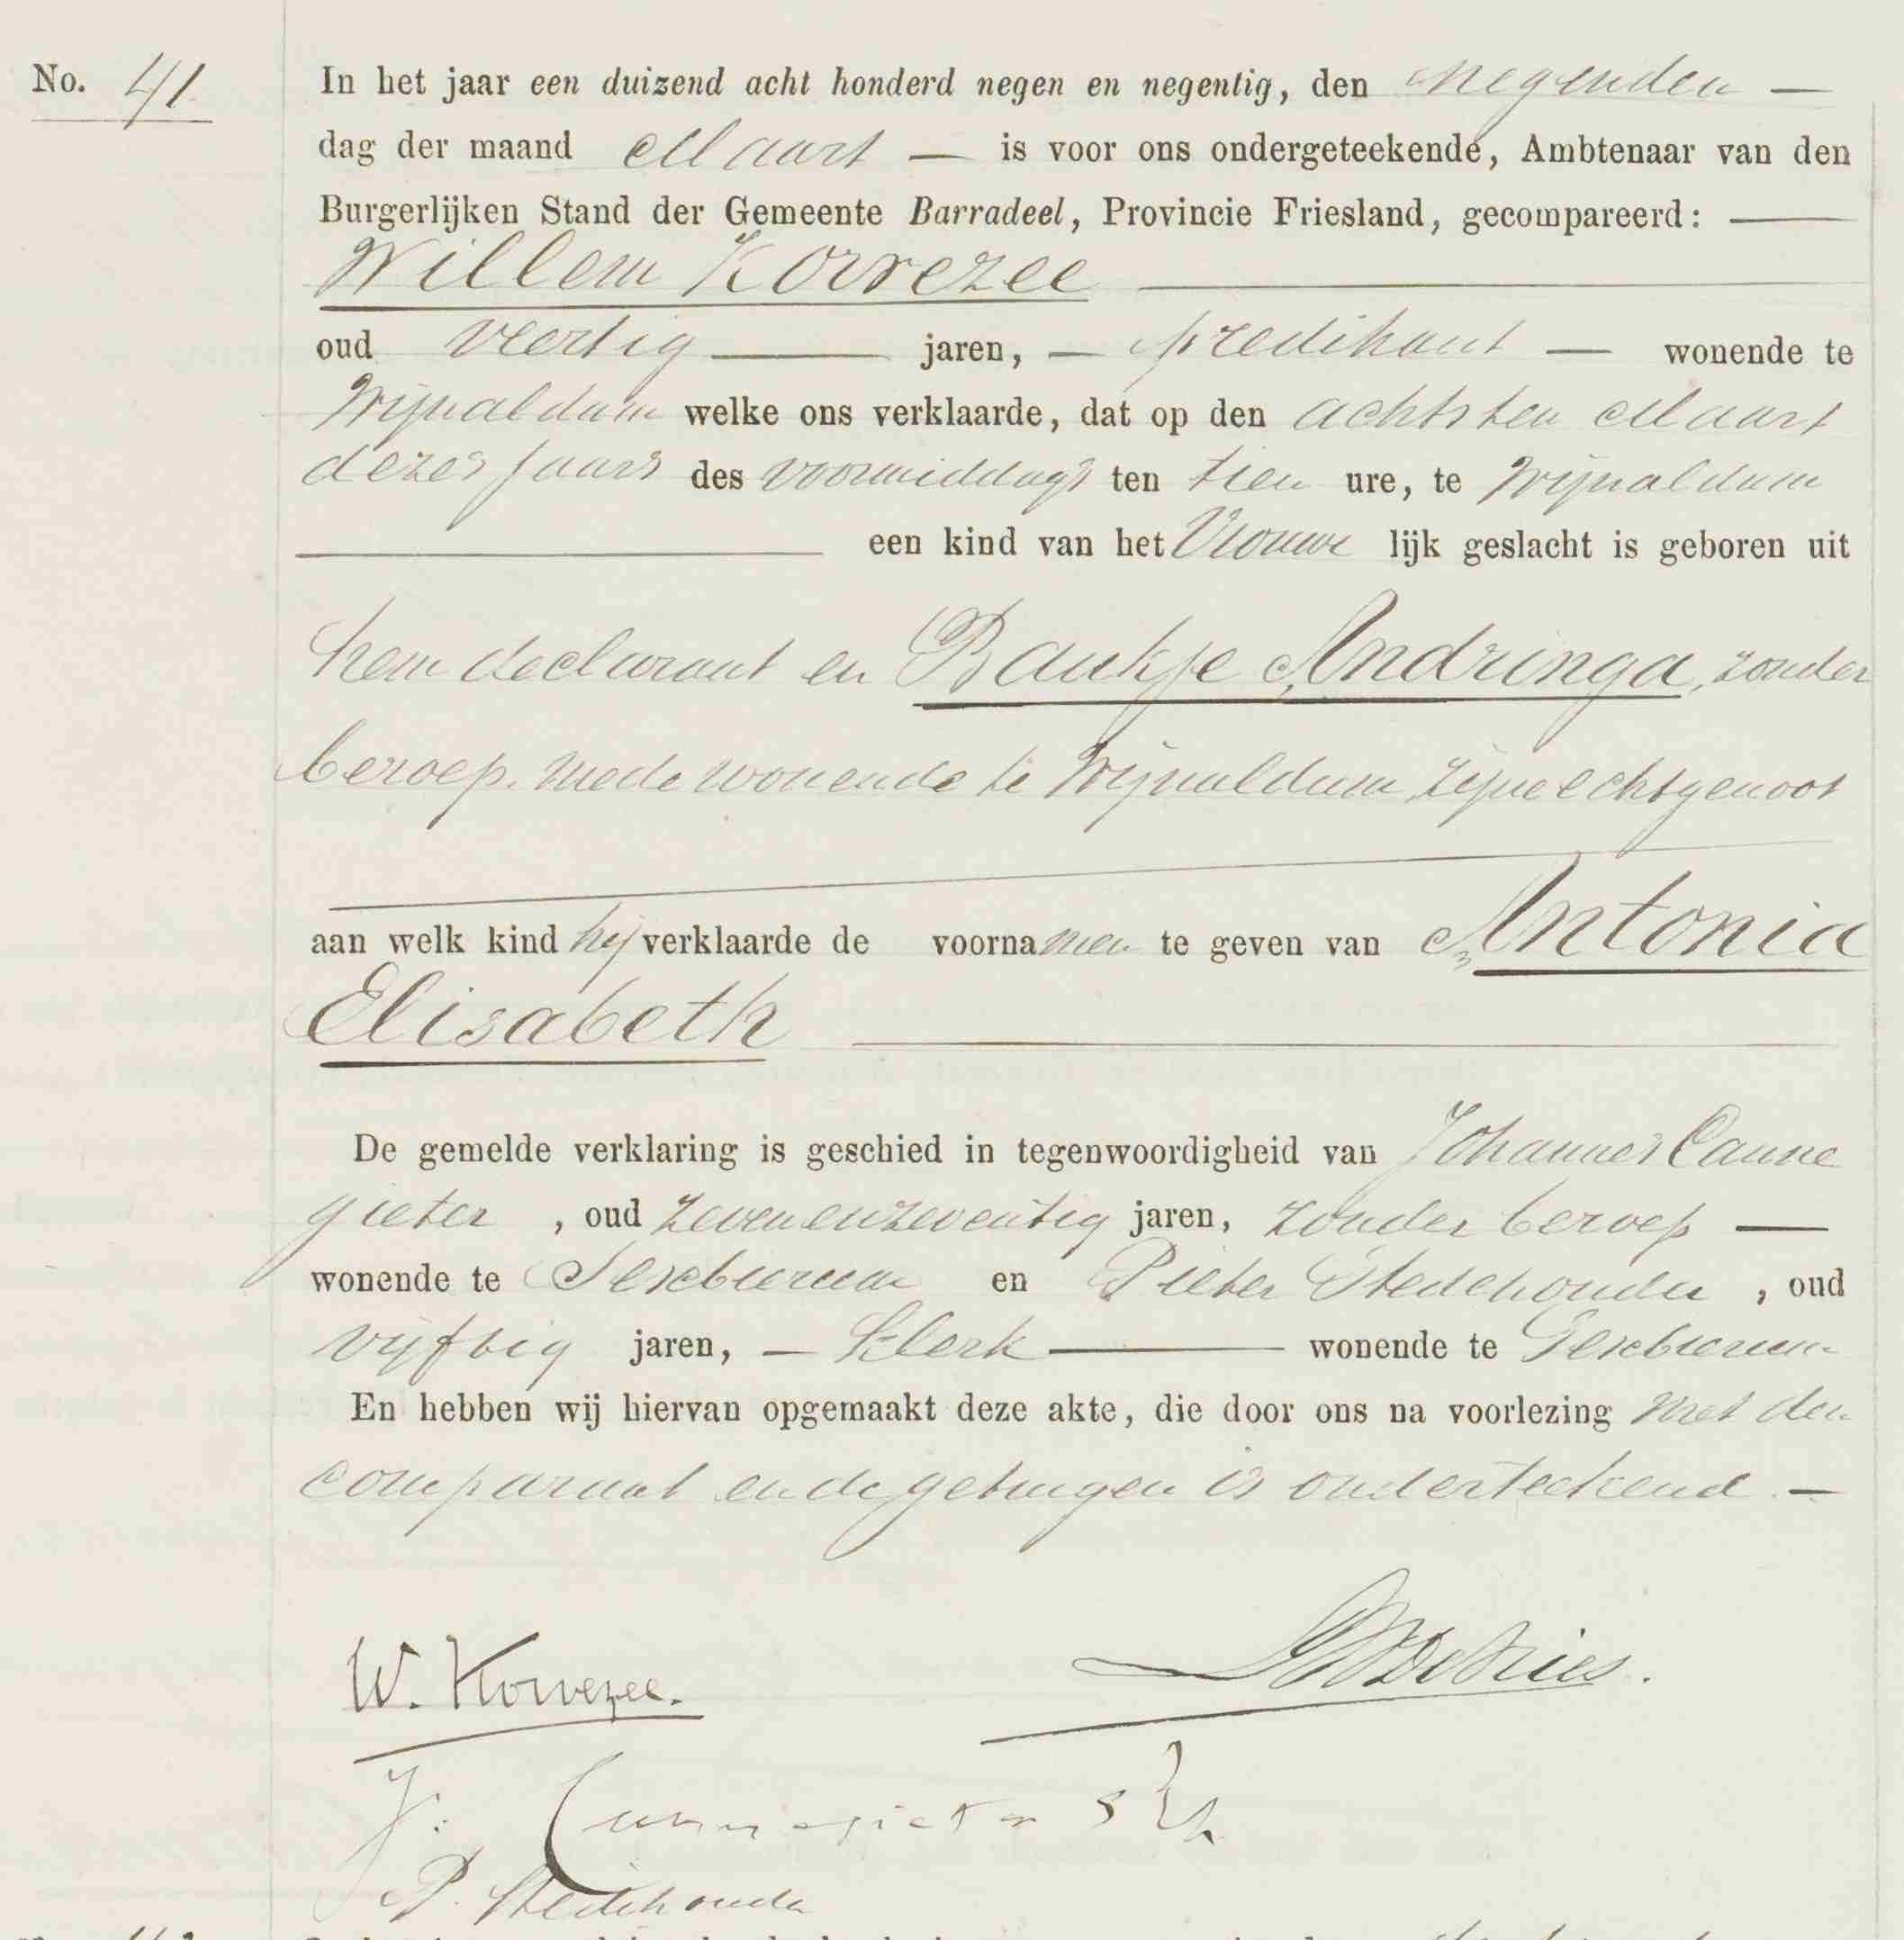 No. 41
In het jaar een duizend acht honderd negen en negentig, den negenden —
dag der maand Maart — is voor ons ondergeteekende, Ambtenaar van den
Burgerlijken Stand der Gemeente Barradeel, Provincie Friesland, gecompareerd: —
Willem Korvezee —
oud veertig — jaren, — predikant — wonende te
Wijnaldum welke ons verklaarde, dat op den achtsten Maart
dezes jaars des voormiddags ten tien ure, te Wijnaldum
— een kind van het Vrouwe lijk geslacht is geboren uit
hem declarant en Baukje Andringa, zonder
beroep, mede wonende te Wijnaldum, zijne echtgenoot
aan welk kind hij verklaarde de voornamen te geven van Antonia
Elisabeth —
De gemelde verklaring is geschied in tegenwoordigheid van Johannes Canne
gieter , oud zevenenzeventig jaren, zonder beroep —
wonende te Sexbierum en Pieter Stedehouder , oud
vijftig jaren, — klerk — wonende te Sexbierum
En hebben wij hiervan opgemaakt deze akte, die door ons na voorlezing met den
comparant en de getuigen is onderteekend. —
W. Korvezee.
de Vries.
J. Cannegieter
P. Stedehouder